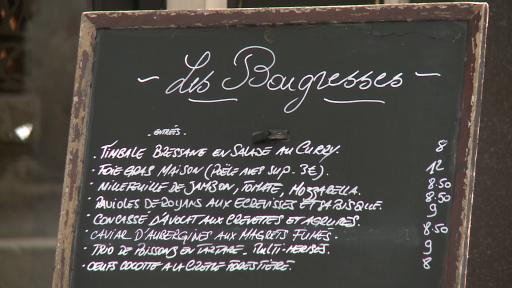 ~ Les Bougresses ~
. ENTRÉES.
. TIMBALE BRESSANE EN SALADE AU CURRY. 8
. FOIE GRAS MAISON (POÊLÉ AVES SUP. 3€). 12
. MILLEFEUILLE DE JAMBON, TOMATE, MOZZARELLA. 8.50
. RAVIOLES DE ROYANS AUX ECREVISSES ET SA BISQUE. 8.50
. CONCASSÉ D'AVOCAT AUX CREVETTES ET AGRUMES. 9
. CAVIAR D'AUBERGINES AUX MAGRETS FUMÉS. 8.50
. TRIO DE POISSONS EN TARTARE. 9
. OEUFS COCOTTE A LA CRÈME FORESTIÈRE. 8